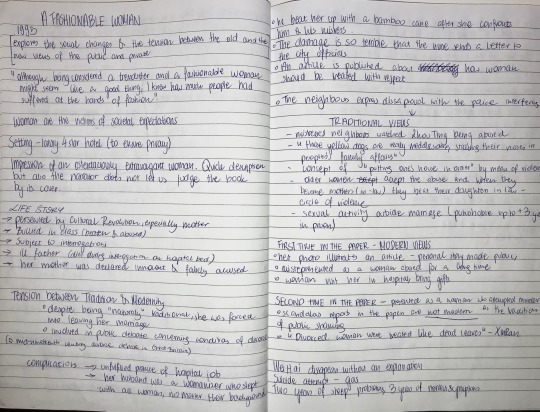 A FASHIONABLE WOMAN
1993
explores the social changes & the tension between the old and the
new views of the public and private
"although being considered a trendsetter and a fashionable woman
might seem like a good thing, I know how much people had
suffered at the hands of fashion"
Women are the victims of societal expectations
Setting - luxury 4 star hotel (to ensure privacy)
Impression of an ostentatiously extravagant woman. Quick description
but also the narrator does not let us judge the book
by its cover.
LIFE STORY
→ persecuted by Cultural Revolution, especially mother
→ Bullied in class (beaten & abused)
→ Subject to interrogations
→ ill father (died during interrogation on hospital bed)
→ her mother was declared innocent & falsely accused
Tension between Tradition & Modernity
• despite being "naturally" traditional, she was forced
into leaving her marriage
• involved in public debate concerning conditions of divorce
complication → unfulfilled promise of hospital job
→ her husband was a womaniser who slept
with all women, no matter their background
• He beat her up with a bamboo cane after she confronts
him & his mistress
• The damage is so terrible that she writes a letter to
the city officials
• An article is published about how woman
should be treated with respect
• The neighbours express disapproval with the police interfering
TRADITIONAL VIEWS
- neighbors watched Zhou Ting being abused
peoples' family affairs"
- concept of "putting one's house in order" by means of violence
- older women accept the abuse and when they
become mothers (in-law) they beat their daughter in law -
circle of violence
- sexual activity outside marriage (punishable up to 3 years
in prison)
FIRST TIME IN THE PAPER - MODERN VIEWS
• her photo illustrates an article - personal story made public,
• misrepresented as a woman abused for a long time
• woman visit her in hospital bring gifts
SECOND TIME IN THE PAPER - presented as a woman who disrupted
• scandalous report in the papers are not modern
of public shaming
• "Divorced women were treated like dead leaves" - Xinran
Wei Hai disappears without an explanation
Suicide attempt - gas
Two years of sleep problems,